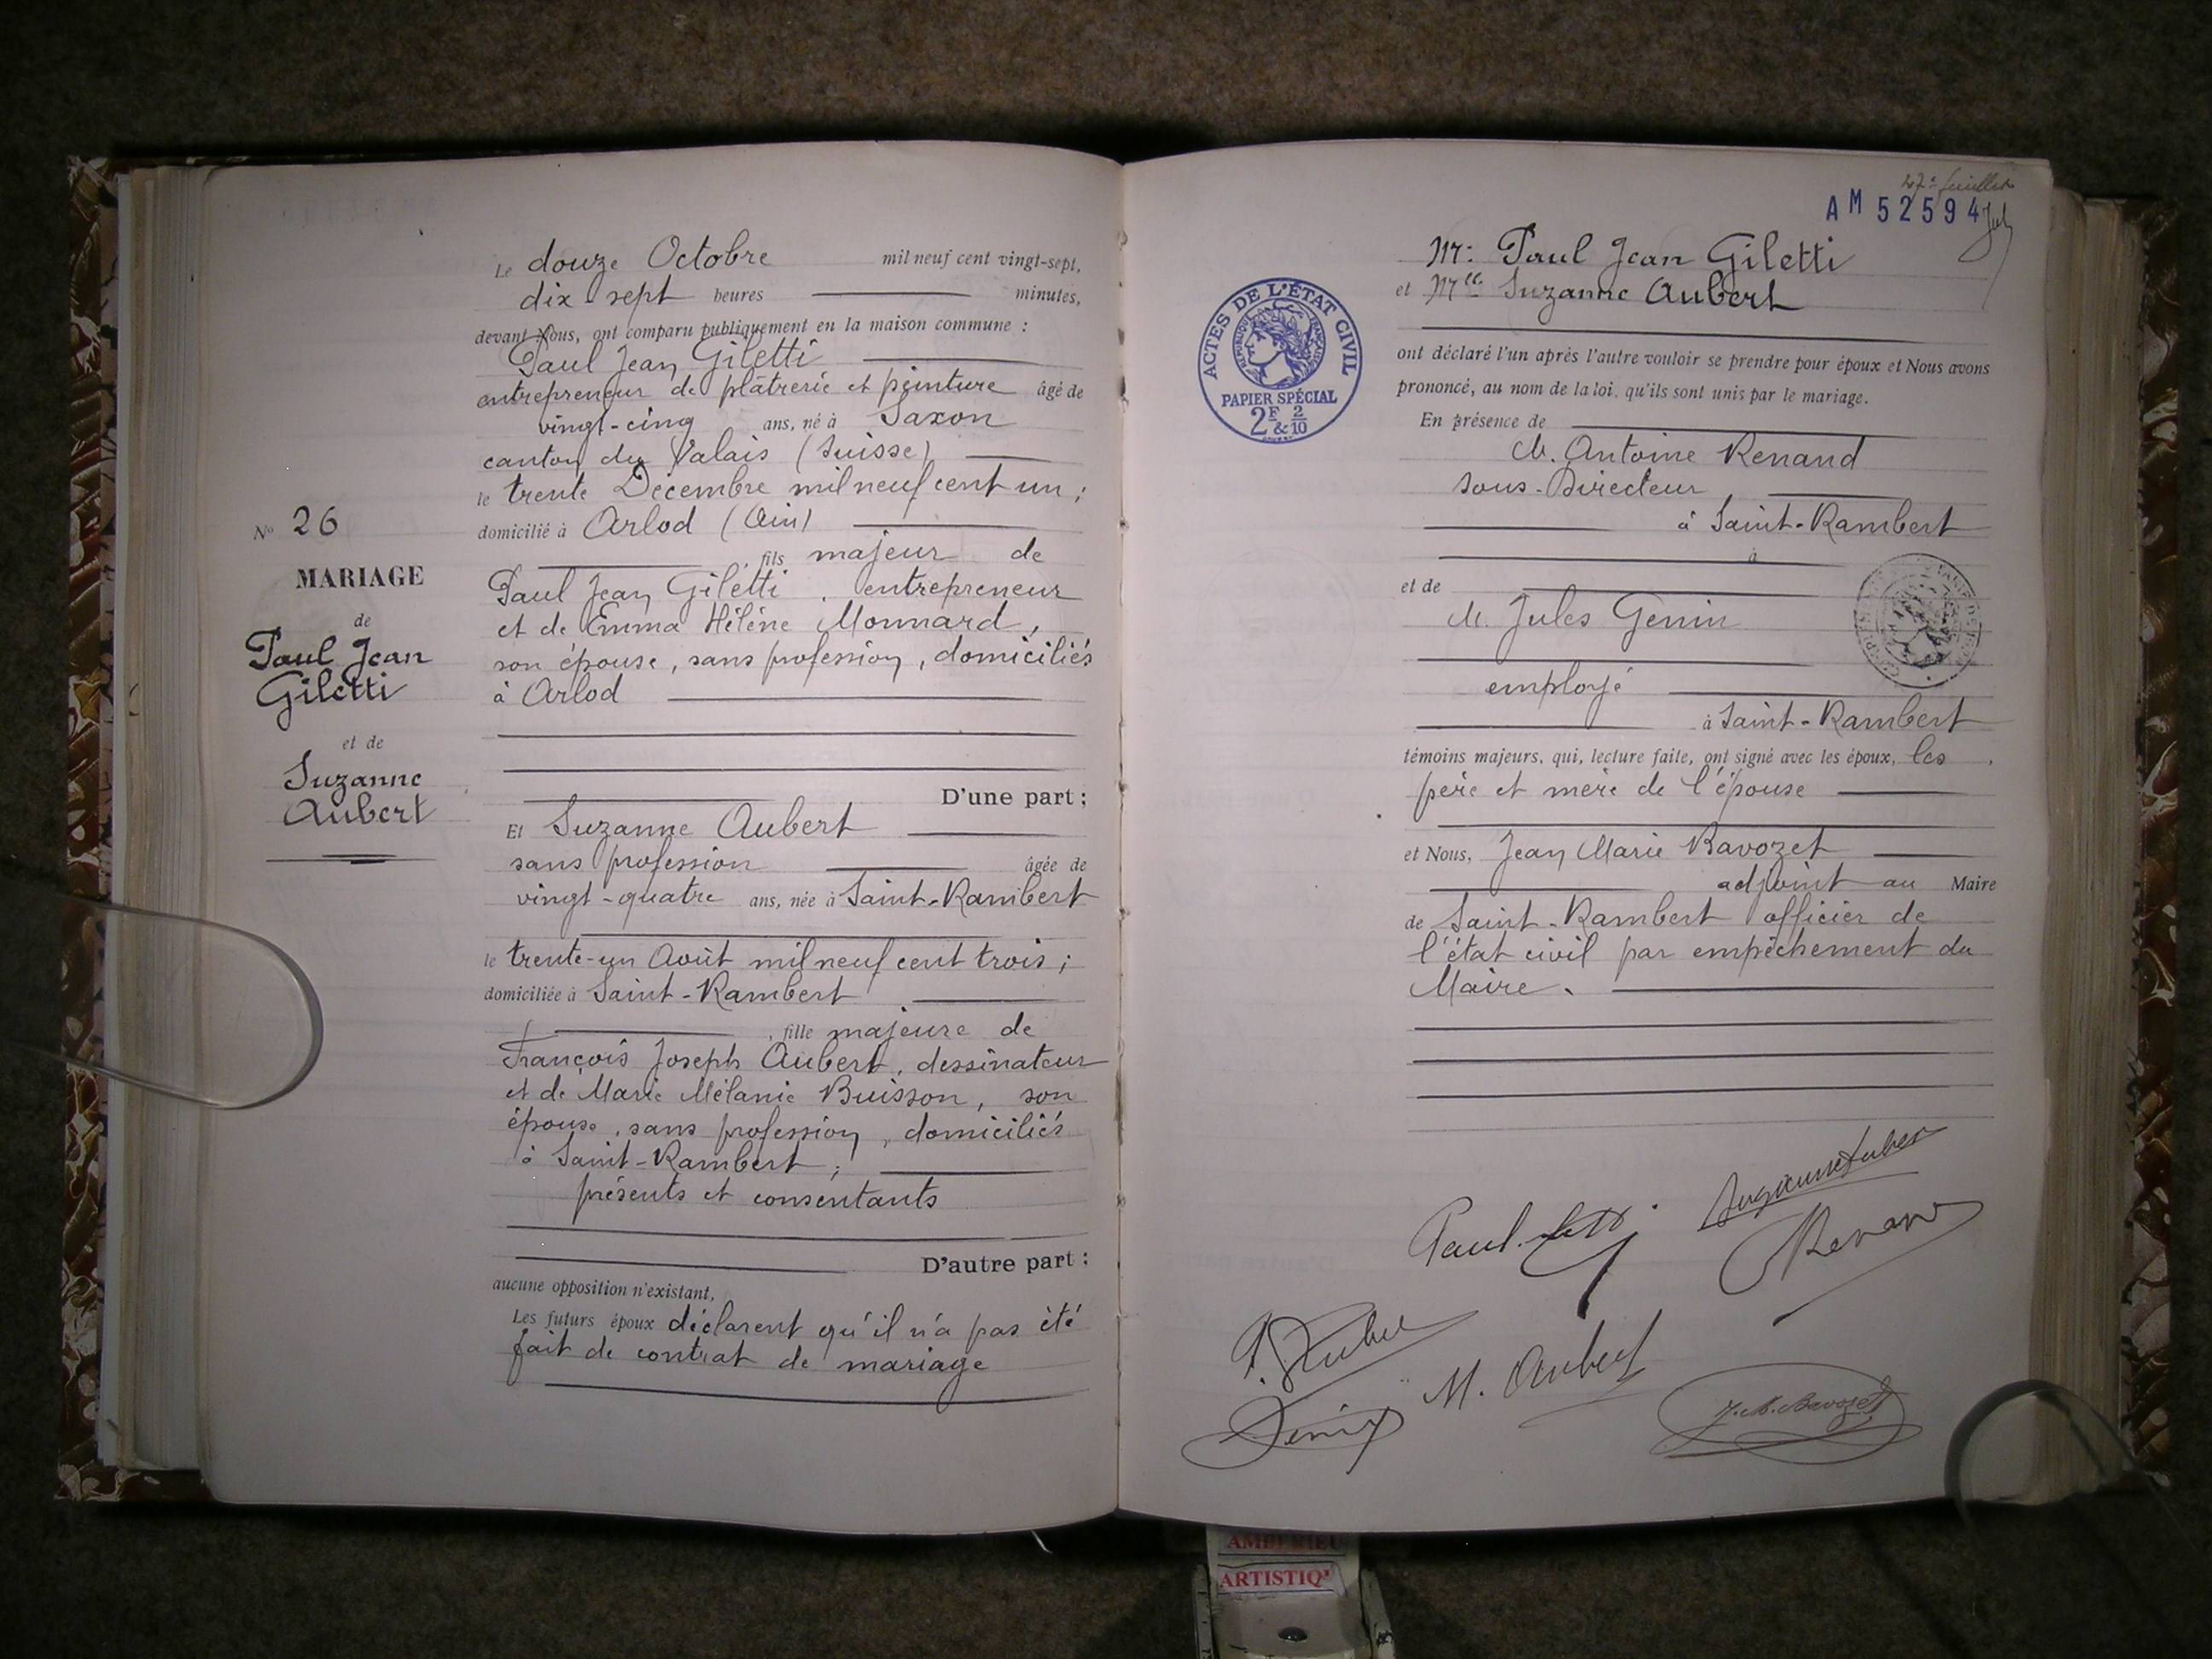 Le douze Octobre mil neuf cent vingt-sept,
dix-sept heures minutes,
devant Nous, ont comparu publiquement en la maison commune :
Paul Jean Giletti
entrepreneur de plâtrerie et peinture âgé de
vingt-cinq ans, né à Saxon
canton du Valais (Suisse)
le trente Décembre mil neuf cent un ;
domicilié à Arlod (Ain)
, fils majeur de
Paul Jean Giletti, entrepreneur
et de Emma Hélène Monnard,
son épouse, sans profession, domiciliés
à Arlod
D'une part ;
Et Suzanne Aubert
sans profession âgée de
vingt-quatre ans, née à Saint-Rambert
le trente-un Août mil neuf cent trois ;
domiciliée à Saint-Rambert
, fille majeure de
François Joseph Aubert, dessinateur
et de Marie Mélanie Buisson, son
épouse, sans profession, domiciliés
à Saint-Rambert ;
présents et consentants
D'autre part :
aucune opposition n'existant,
Les futurs époux déclarent qu'il n'a pas été
fait de contrat de mariage
No 26
MARIAGE
de
Paul Jean
Giletti
et de
Suzanne
Aubert
AM 52594
Mr: Paul Jean Giletti
et Mlle Suzanne Aubert
ont déclaré l'un après l'autre vouloir se prendre pour époux et Nous avons
prononcé, au nom de la loi, qu'ils sont unis par le mariage.
En présence de
M. Antoine Renand
Sous-Directeur
à Saint-Rambert
à
et de
M. Jules Genin
employé
à Saint-Rambert
témoins majeurs, qui, lecture faite, ont signé avec les époux, les
père et mère de l'épouse
et Nous, Jean Marie Bavozet
adjoint au Maire
de Saint-Rambert officier de
l'état civil par empêchement du
Maire.
ACTES DE L'ÉTAT CIVIL
RÉPUBLIQUE FRANÇAISE
PAPIER SPÉCIAL
2F & 2/10
Suzanne Aubert
Paul
Renand
M. Aubert
Genin
J. M. Bavozet
ARTISTIQ